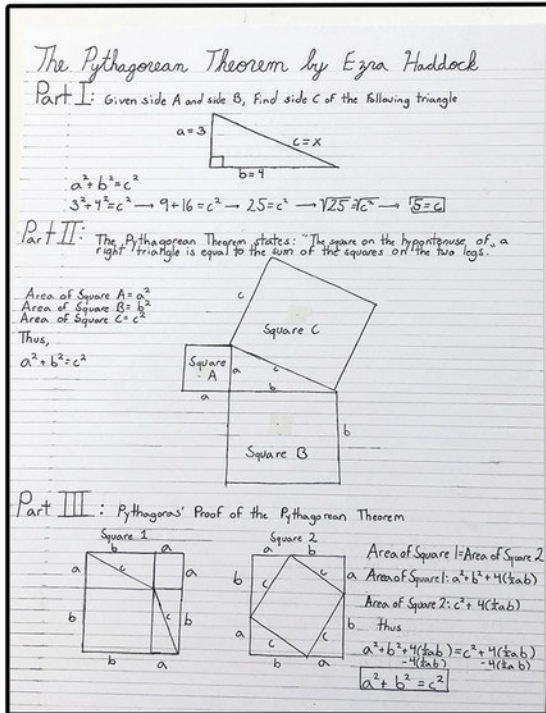 The Pythagorean Theorem by Ezra Haddock
Part I: Given side A and side B, Find side C of the following triangle
a=3
c=x
b=4
a²+b²=c²
3²+4²=c² → 9+16=c² → 25=c² → √25=√c² → 5=c
Part II: The Pythagorean Theorem states: "The square on the hypontenuse of a
right triangle is equal to the sum of the squares on the two legs."
Area of Square A=a²
Area of Square B=b²
Area of Square C=c²
Thus,
a²+b²=c²
c
Square C
Square
A
a
c
b
a
b
Square B
Part III: Pythagoras' Proof of the Pythagorean Theorem
Square 1
b a
a c a
b c b
b a
Square 2
a b
b c c a
a c c b
b a
Area of Square 1=Area of Square 2
Area of Square 1: a²+b²+4(½ab)
Area of Square 2: c²+4(½ab)
thus
a²+b²+4(½ab)=c²+4(½ab)
-4(½ab) -4(½ab)
a²+b²=c²